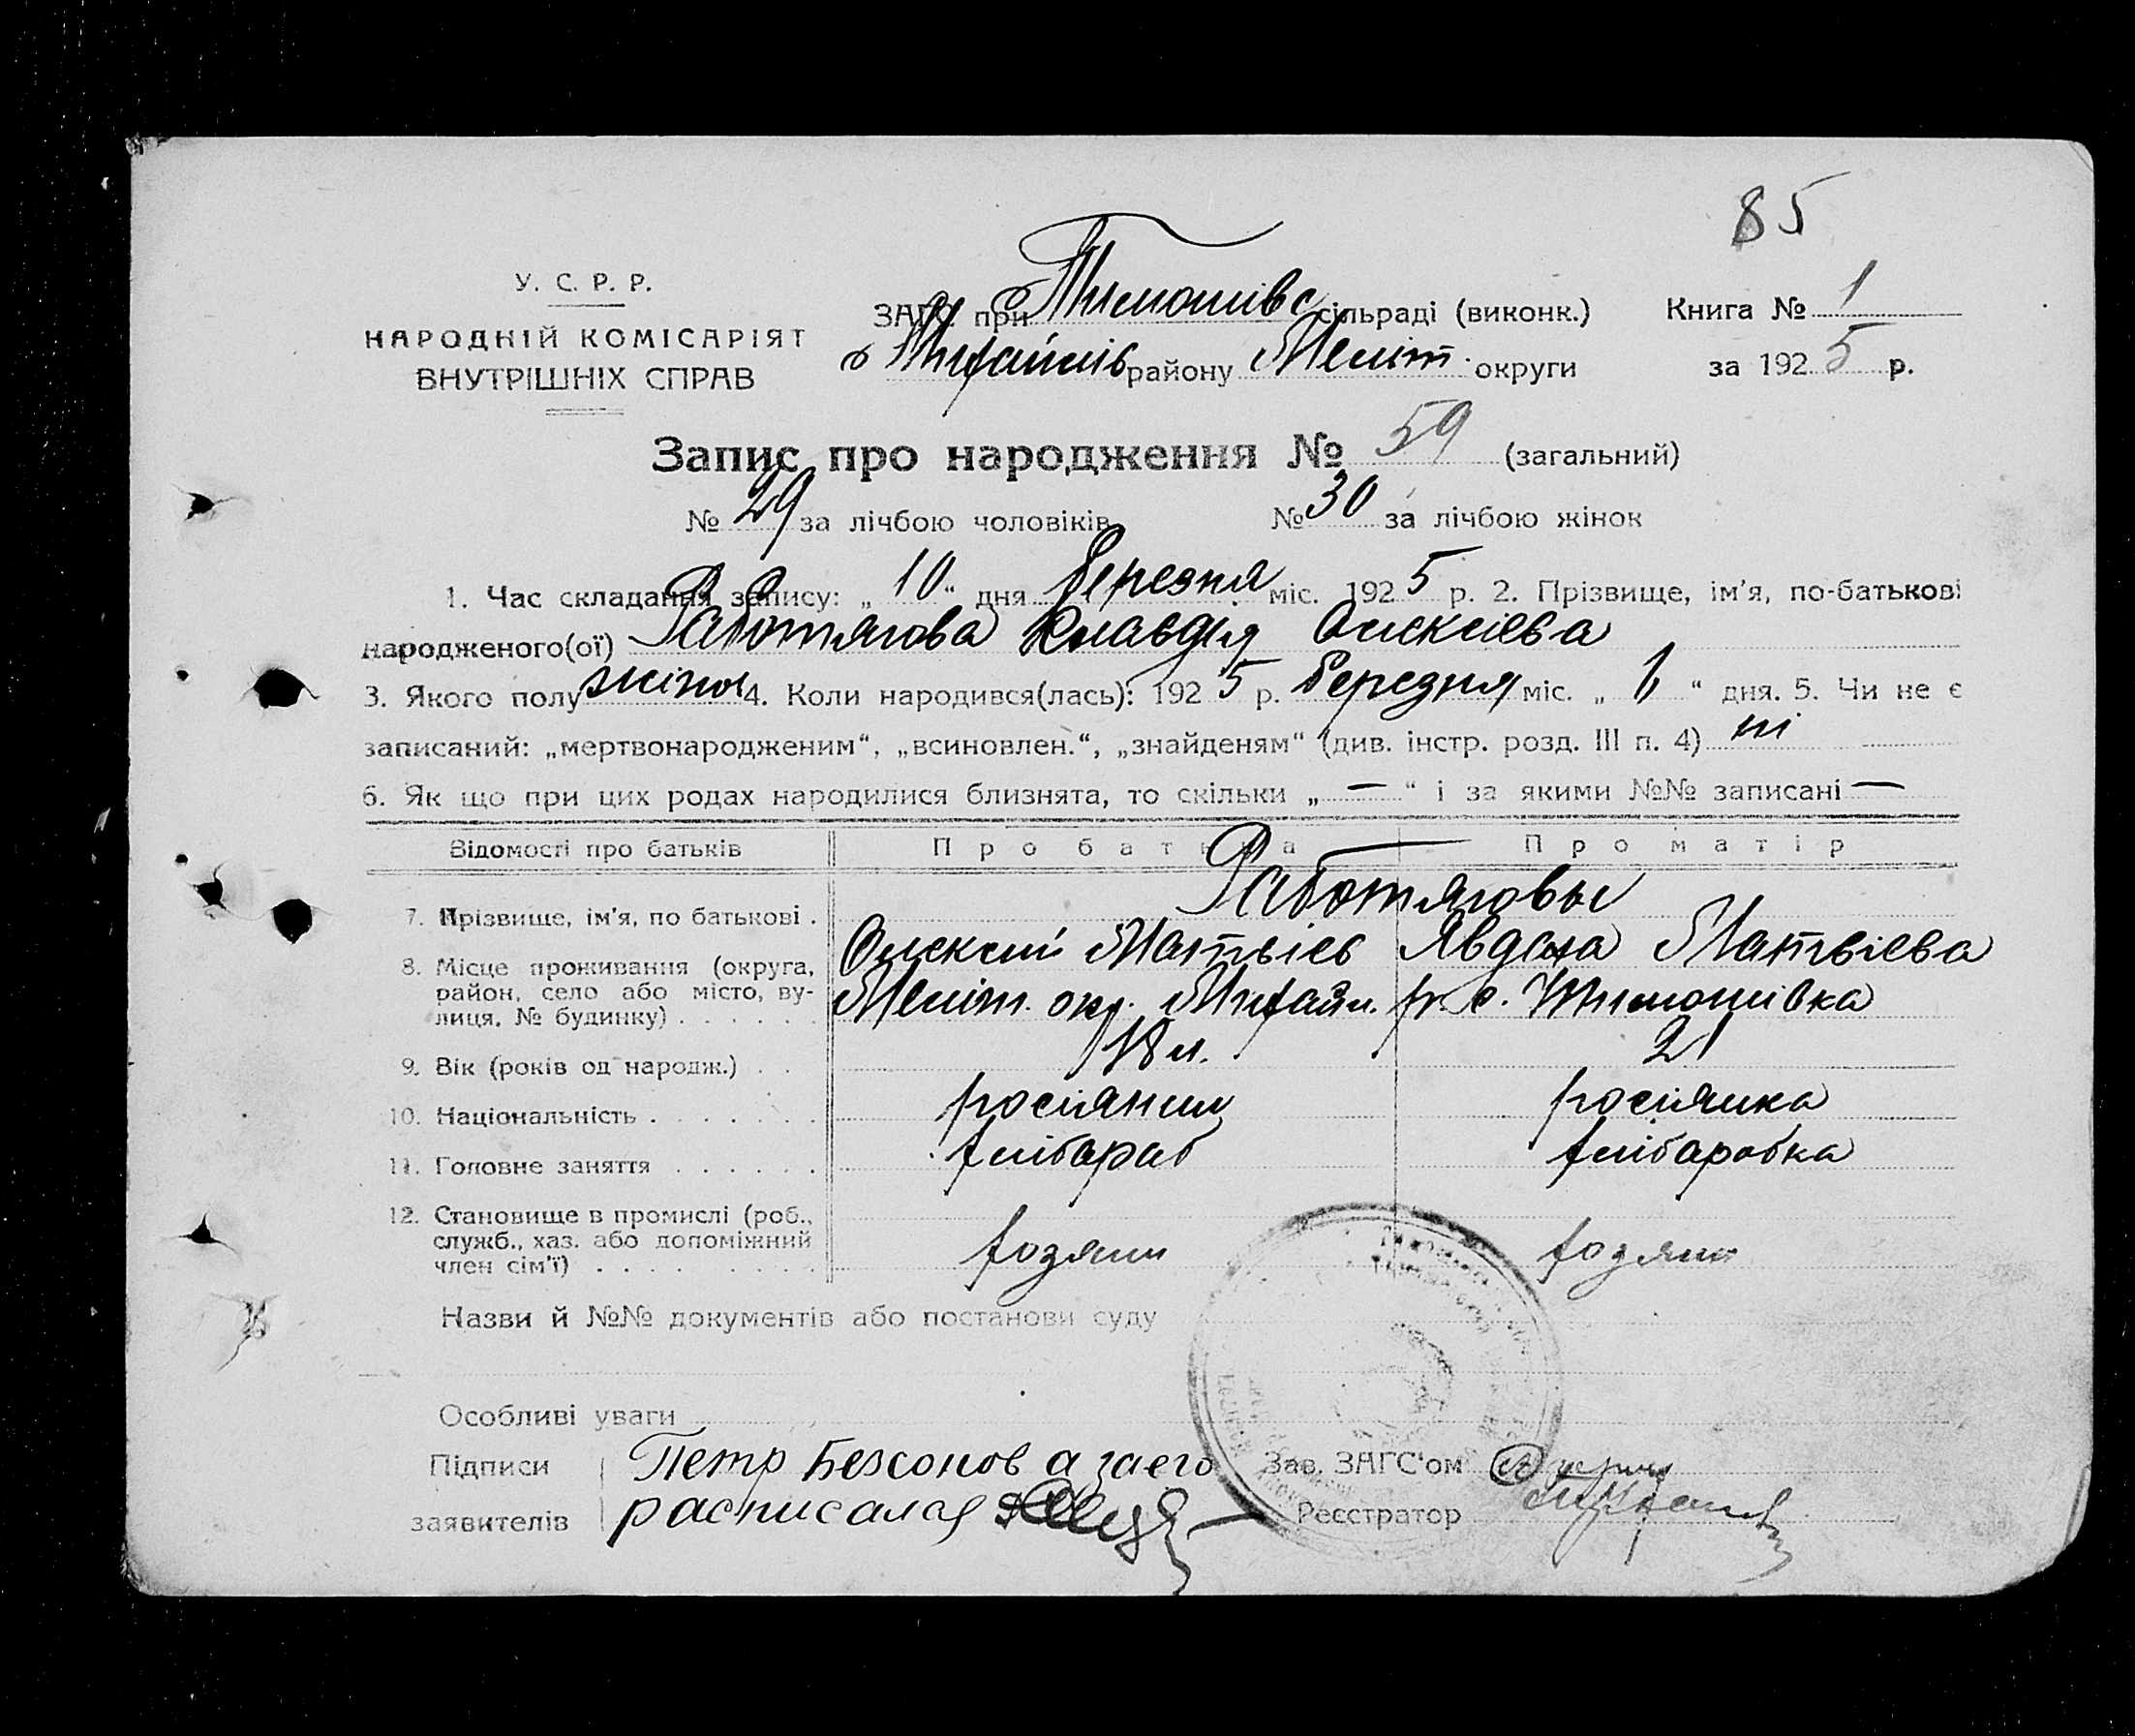 85
У. С. Р. Р.
НАРОДНІЙ КОМІСАРІЯТ
ВНУТРІШНІХ СПРАВ
ЗАГС при Тимошівс сільраді (виконк.)
Михайлів району Меліт. округи
Книга № 1
за 1925 р.
Запис про народження № 59 (загальний)
№ 29 за лічбою чоловіків № 30 за лічбою жінок
1. Час складання запису: „10“ дня березня міс. 1925 р. 2. Прізвище, ім'я, по-батькові
народженого(ої) Работягова Клавдія Олексієва
3. Якого полу жіноч 4. Коли народився(лась): 1925 р. березня міс. „ “ дня. 5. Чи не є
записаний: „мертвонародженим“, „всиновлен.“, „знайденям“ (див. інстр. розд. III п. 4) ні
6. Як що при цих родах народилися близнята, то скільки „—“ і за якими №№ записані —
Відомості про батьків Про батька Про матір
7. Прізвище, ім'я, по батькові . Работяговы
Олексій Матвіев Явдоха Матвієва
8. Місце проживання (округа, район, село або місто, вулиця, № будинку) . . . . . . Меліт. окр. Михайл. р. с. Тимошівка
9. Вік (років од народж.) . . 18 л. 21
10. Національність . . . . . . . росіянин росіянка
11. Головне заняття . . . . . . хлібараб хлібаробка
12. Становище в промислі (роб., служб., хаз. або допоміжний член сім'ї) . . . . . . . . . хозяин хозяин
Назви й №№ документів або постанови суду
Особливі уваги
Підписи заявителів
Петр Безсонов а заего
расписался
Зав. ЗАГС'ом
Реєстратор